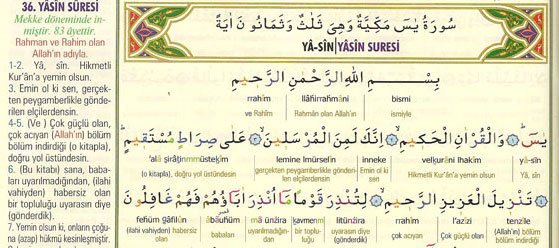 36. YÂSÎN SÛRESİ
Mekke döneminde in-
miştir. 83 âyettir.
Rahman ve Rahim olan
Allah'ın adıyla.
1-2. Yâ, sîn. Hikmetli
Kur'ân'a yemin olsun.
3. Emin ol ki sen, gerçek-
ten peygamberlikle gönde-
rilen elçilerdensin.
4-5. (Ve ) Çok güçlü olan,
çok acıyan (Allah'ın) bölüm
bölüm indirdiği (o kitapla),
doğru yol üstündesin.
6. (Bu kitabı) sana, baba-
ları uyarılmadığından, (ilahi
vahiyden) habersiz olan
bir topluluğu uyarasın diye
(gönderdik).
7. Yemin olsun ki, onların çoğu-
na (azap) hükmü kesinleşmiştir.
سُورَةُ يٰسٓ مَكِّيَّةٌ وَهِيَ ثَلٰثٌ وَثَمَانُونَ اٰيَةً
YÂ-SÎN YÂSİN SURESİ
بِسْمِ اللهِ الرَّحْمٰنِ الرَّحِيمِ
rrahîm llâhirrahmâni bismi
ve Rahîm Rahmân Allah'ın ismiyle
يٰسٓ ﴿١﴾ وَالْقُرْاٰنِ الْحَكِيمِ ﴿٢﴾ اِنَّكَ لَمِنَ الْمُرْسَلِينَ ﴿٣﴾ عَلٰى صِرَاطٍ مُسْتَقِيمٍ ﴿٤﴾
'alâ şirâţınmmüsteķîm lemine lmürselîn inneke velķurâni lhakîm yâ-sîn
(o kitapla), doğru yol üstündesin. gerçekten peygamberlikle gönderilen elçilerdensin Emin ol ki Hikmetli Kur'ân'a yemin olsun. yâ-sîn
تَنْزِيلَ الْعَزِيزِ الرَّحِيمِ ﴿٥﴾ لِتُنْذِرَ قَوْمًا مَٓا اُنْذِرَ اٰبَٓاؤُهُمْ فَهُمْ غَافِلُونَ
fehüm ğâfilûn âbâuhüm mâ ünzira ķavmenm litünzira rrahîm l'azîzi tenzîle
(ilahi vahiyden) habersiz olan babaları uyarılmadığından bir topluluğu uyarasın diye (gönderdik) çok acıyan (Allah'ın) Çok güçlü olan bölüm bölüm indirdiği